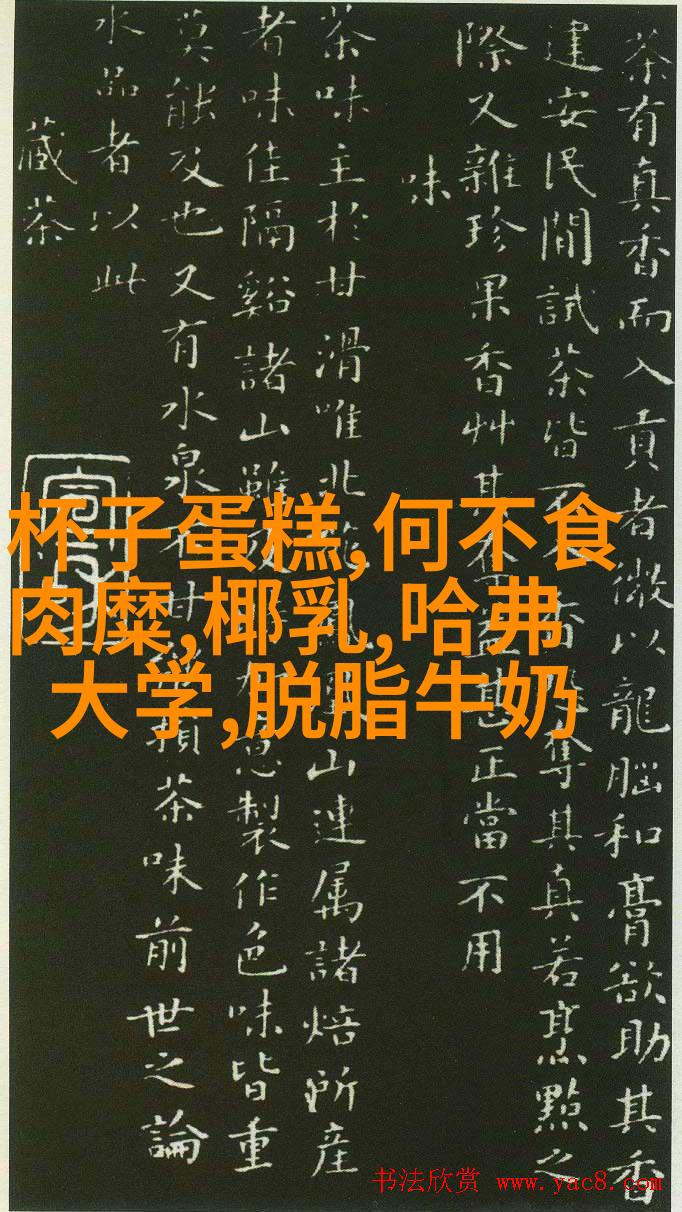 茶有真香而入貢者微以龍腦和膏欲助其香
建安民間試茶皆香奪其真若烹點之
際又雜珍果香艸其甚正當不用
味
茶味主於甘滑唯北山連属諸焙所産
者味佳隔谿諸山雖意製作色味皆重
莫能及也又有水泉甘損茶味前世之論
水品者以此
藏茶
杯子蛋糕,何不食
肉糜,椰乳,哈弗
大学,脱脂牛奶
书法欣赏 www.yac8.com